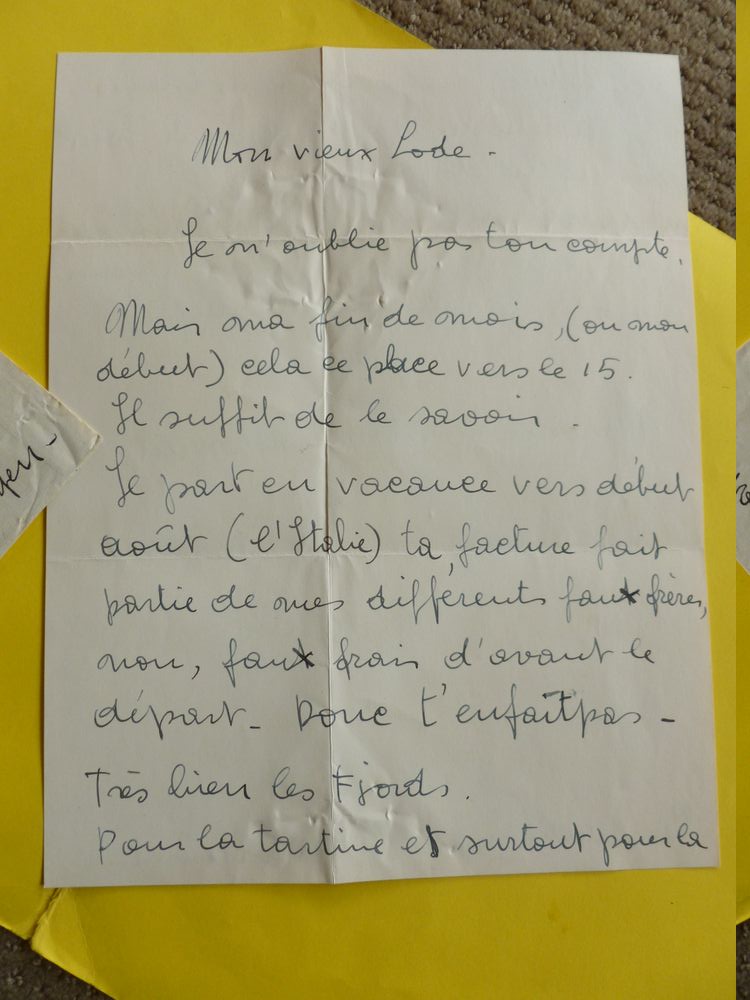 Mon vieux Lode -
Je n'oublie pas ton compte.
Mais ma fin de mois, (ou mon
début) cela ce place vers le 15.
Il suffit de le savoir.
Je part en vacance vers début
août (l'Italie) ta facture fait
partie de mes différents faux frères,
non, faux frais d'avant le
départ - Donc t'enfaitpas -
Très bien les Fjords.
Pour la tartine et surtout pour la